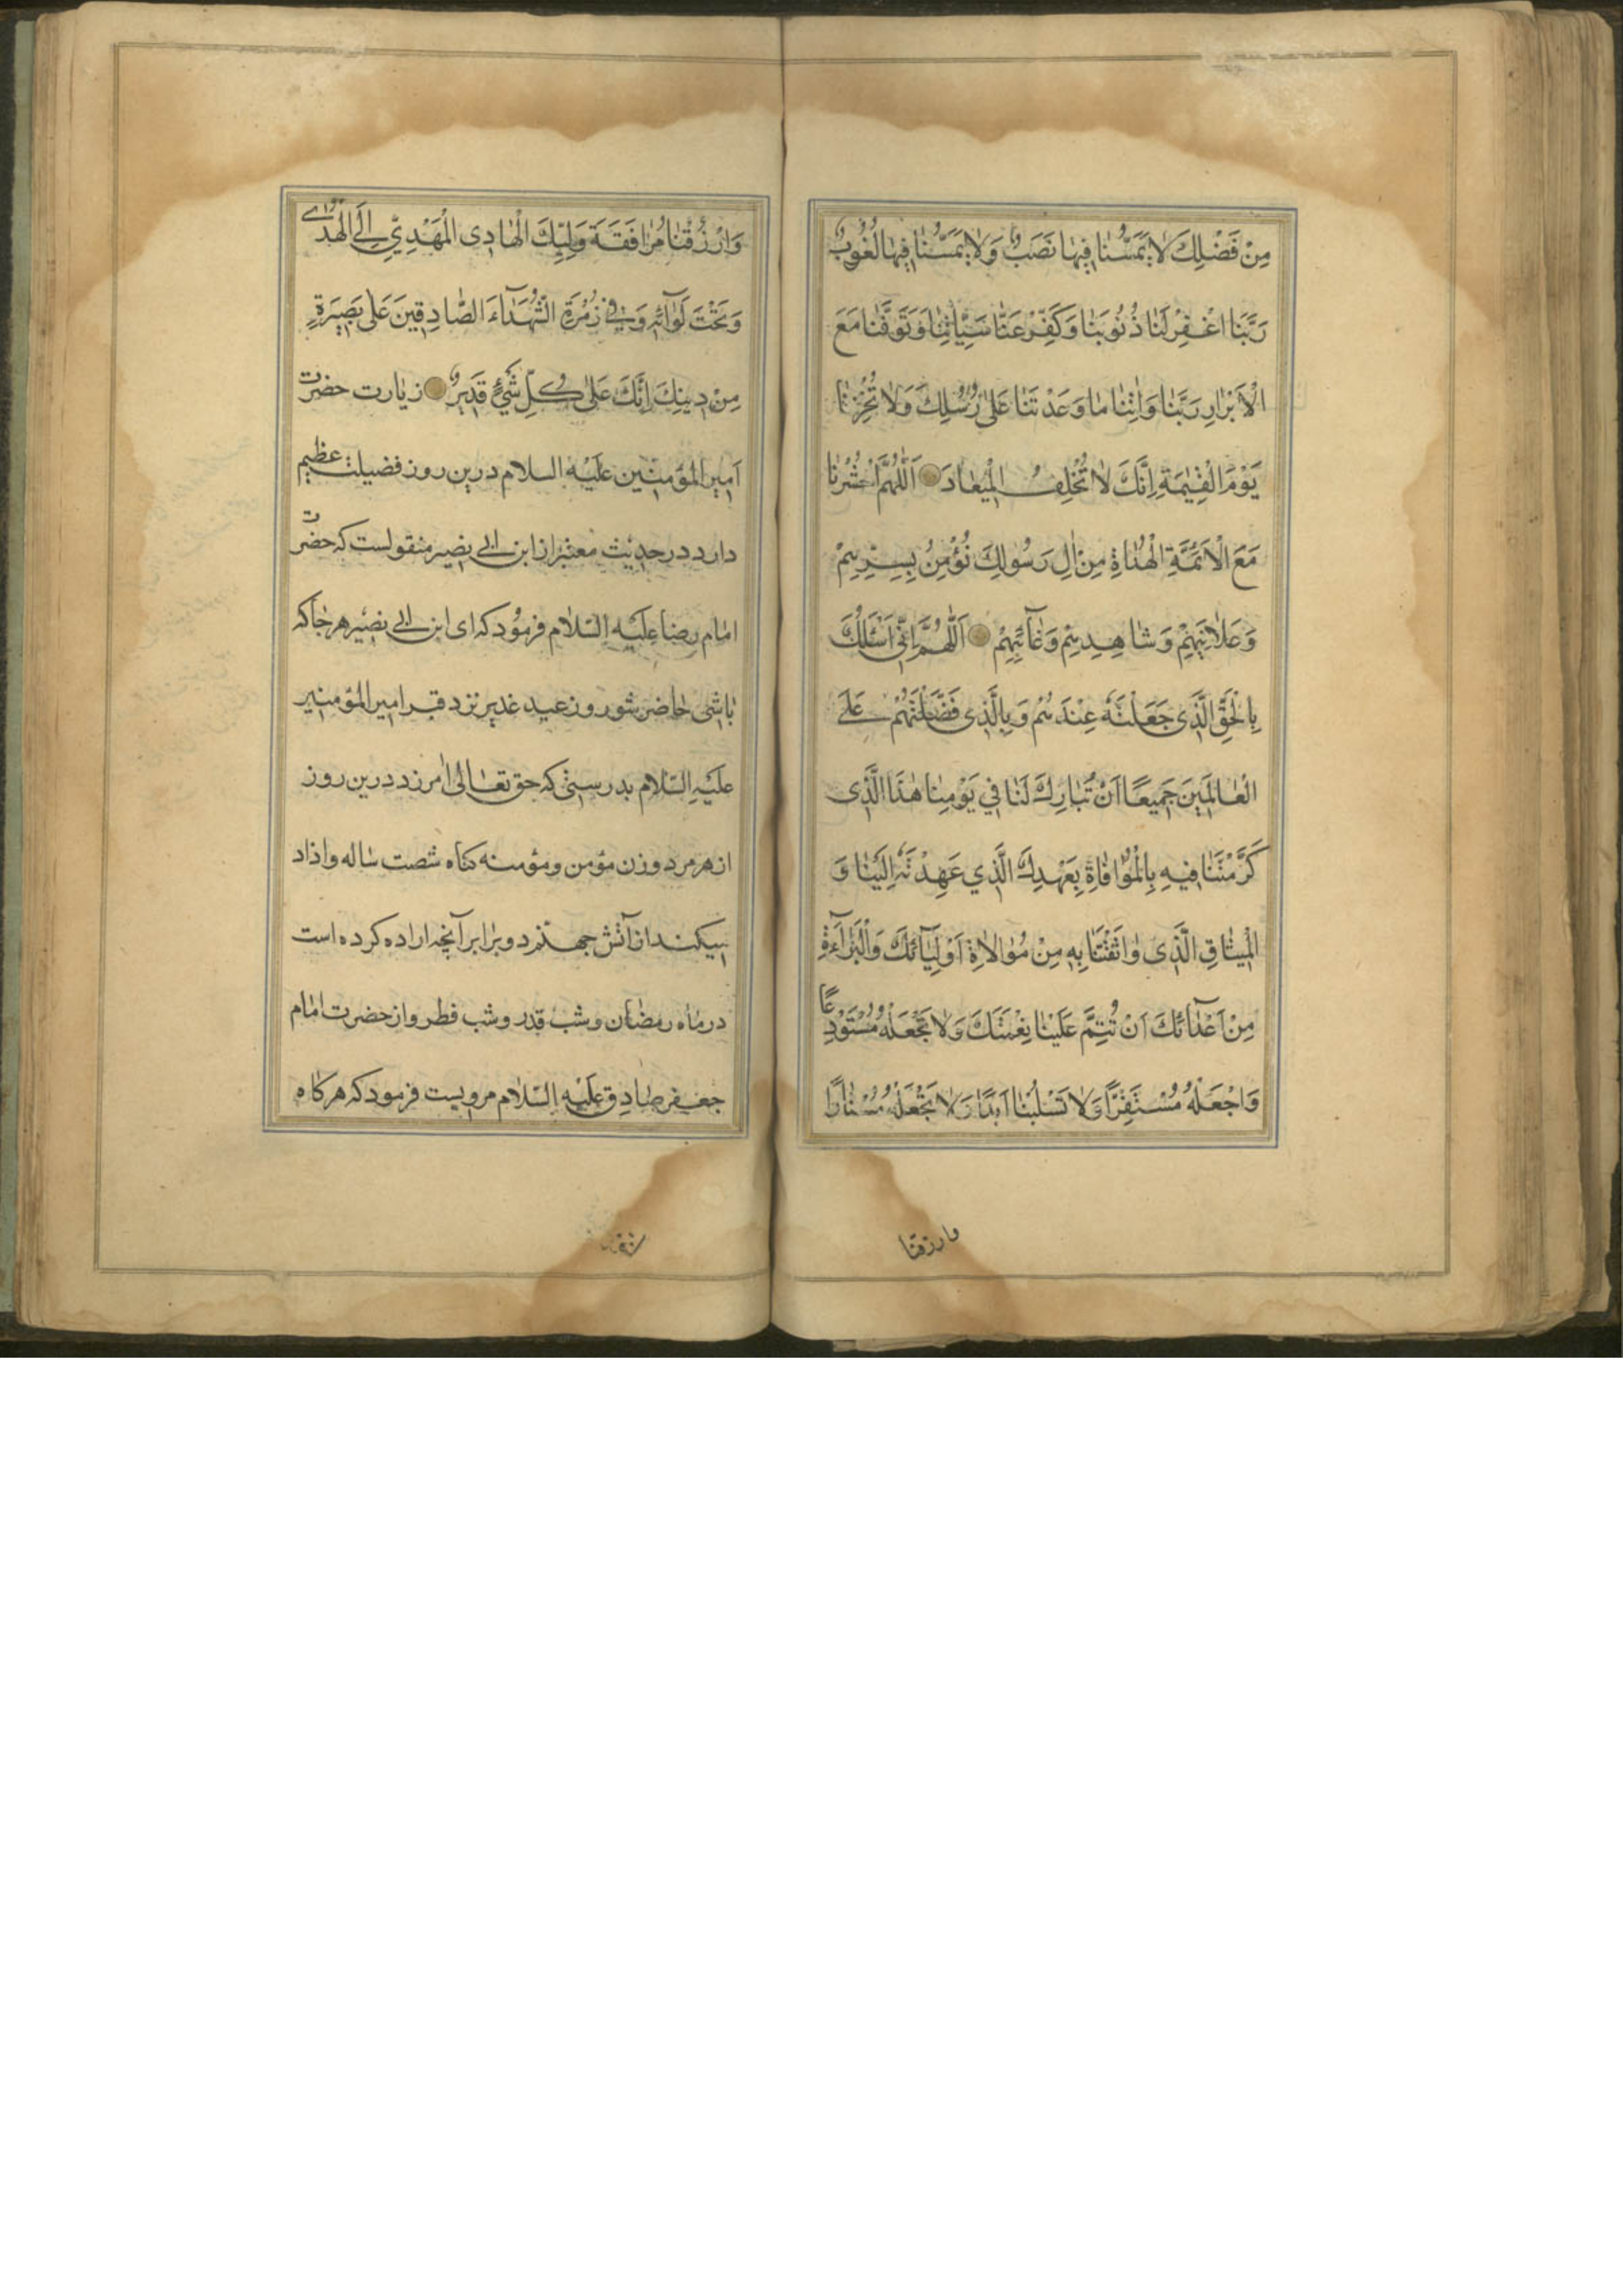 مِنْ فَضْلِكَ لَا يَمَسُّنَا فِيهَا نَصَبٌ وَلَا يَمَسُّنَا فِيهَا لُغُوبٌ
رَبَّنَا اغْفِرْ لَنَا ذُنُوبَنَا وَكَفِّرْ عَنَّا سَيِّئَاتِنَا وَتَوَفَّنَا مَعَ
الْأَبْرَارِ رَبَّنَا وَآتِنَا مَا وَعَدْتَنَا عَلَى رُسُلِكَ وَلَا تُخْزِنَا
يَوْمَ الْقِيمَةِ إِنَّكَ لَا تُخْلِفُ الْمِيعَادَ اَللّٰهُمَّ احْشُرْنَا
مَعَ الْأَئِمَّةِ الْهُدَاةِ مِنْ آلِ رَسُولِكَ نُؤْمِنُ بِسِرِّهِمْ
وَعَلَانِيَتِهِمْ وَشَاهِدِهِمْ وَغَآئِبِهِمْ اَللّٰهُمَّ اِنِّي اَسْئَلُكَ
بِالْحَقِّ الَّذِي جَعَلْتَهُ عِنْدَهُمْ وَبِالَّذِي فَضَّلْتَهُمْ عَلَى
الْعَالَمِينَ جَمِيعًا اَنْ تُبَارِكَ لَنَا فِي يَوْمِنَا هٰذَا الَّذِي
كَرَّمْتَنَا فِيهِ بِالْمُوَافَاةِ بِعَهْدِكَ الَّذِي عَهِدْتَهُ اِلَيْنَا وَ
الْمِيثَاقِ الَّذِي وَاثَقْتَنَا بِهِ مِنْ مُوَالَاةِ اَوْلِيَآئِكَ وَالْبَرَآءَةِ
مِنْ اَعْدَآئِكَ اَنْ تُتِمَّ عَلَيْنَا نِعْمَتَكَ وَلَا تَجْعَلْهُ مُسْتَوْدِعًا
وَاجْعَلْهُ مُسْتَقِرًّا وَلَا تَسْلُبْنَا اَبَدًا وَلَا تَجْعَلْهُ مُسْتَعَارًا
وارزقنا
وَارْزُقْنَا مُرَافَقَةَ وَلِيِّكَ الْهَادِي الْمَهْدِيِّ اِلَى الْهُدَى
وَتَحْتَ لِوَآئِهِ وَفِي زُمْرَةِ الشُّهَدَآءِ الصَّادِقِينَ عَلَى بَصِيرَةٍ
مِنْ دِينِكَ اِنَّكَ عَلَى كُلِّ شَيْءٍ قَدِيرٌ زيارت حضرت
امير المؤمنين عليه السلام درين روز فضيلت عظيم
دارد در حديث معتبر از ابن ابى بصير منقولست كه حضرت
امام رضا عليه السلام فرمود كه اى ابن ابى بصير هر جا كه
باشى حاضر شو روز عيد غدير نزد قبر امير المؤمنين
عليه السلام بدرستى كه حق تعالى امرزد درين روز
از هر مرد و زن مؤمن و مؤمنه كناه شصت ساله و اذاد
ميكند از آتش جهنم دو برابر آنچه اراده كرده است
در ماه رمضان و شب قدر و شب فطر و از حضرت امام
جعفر صادق عليه السلام مرويست فرمود كه هر كاه